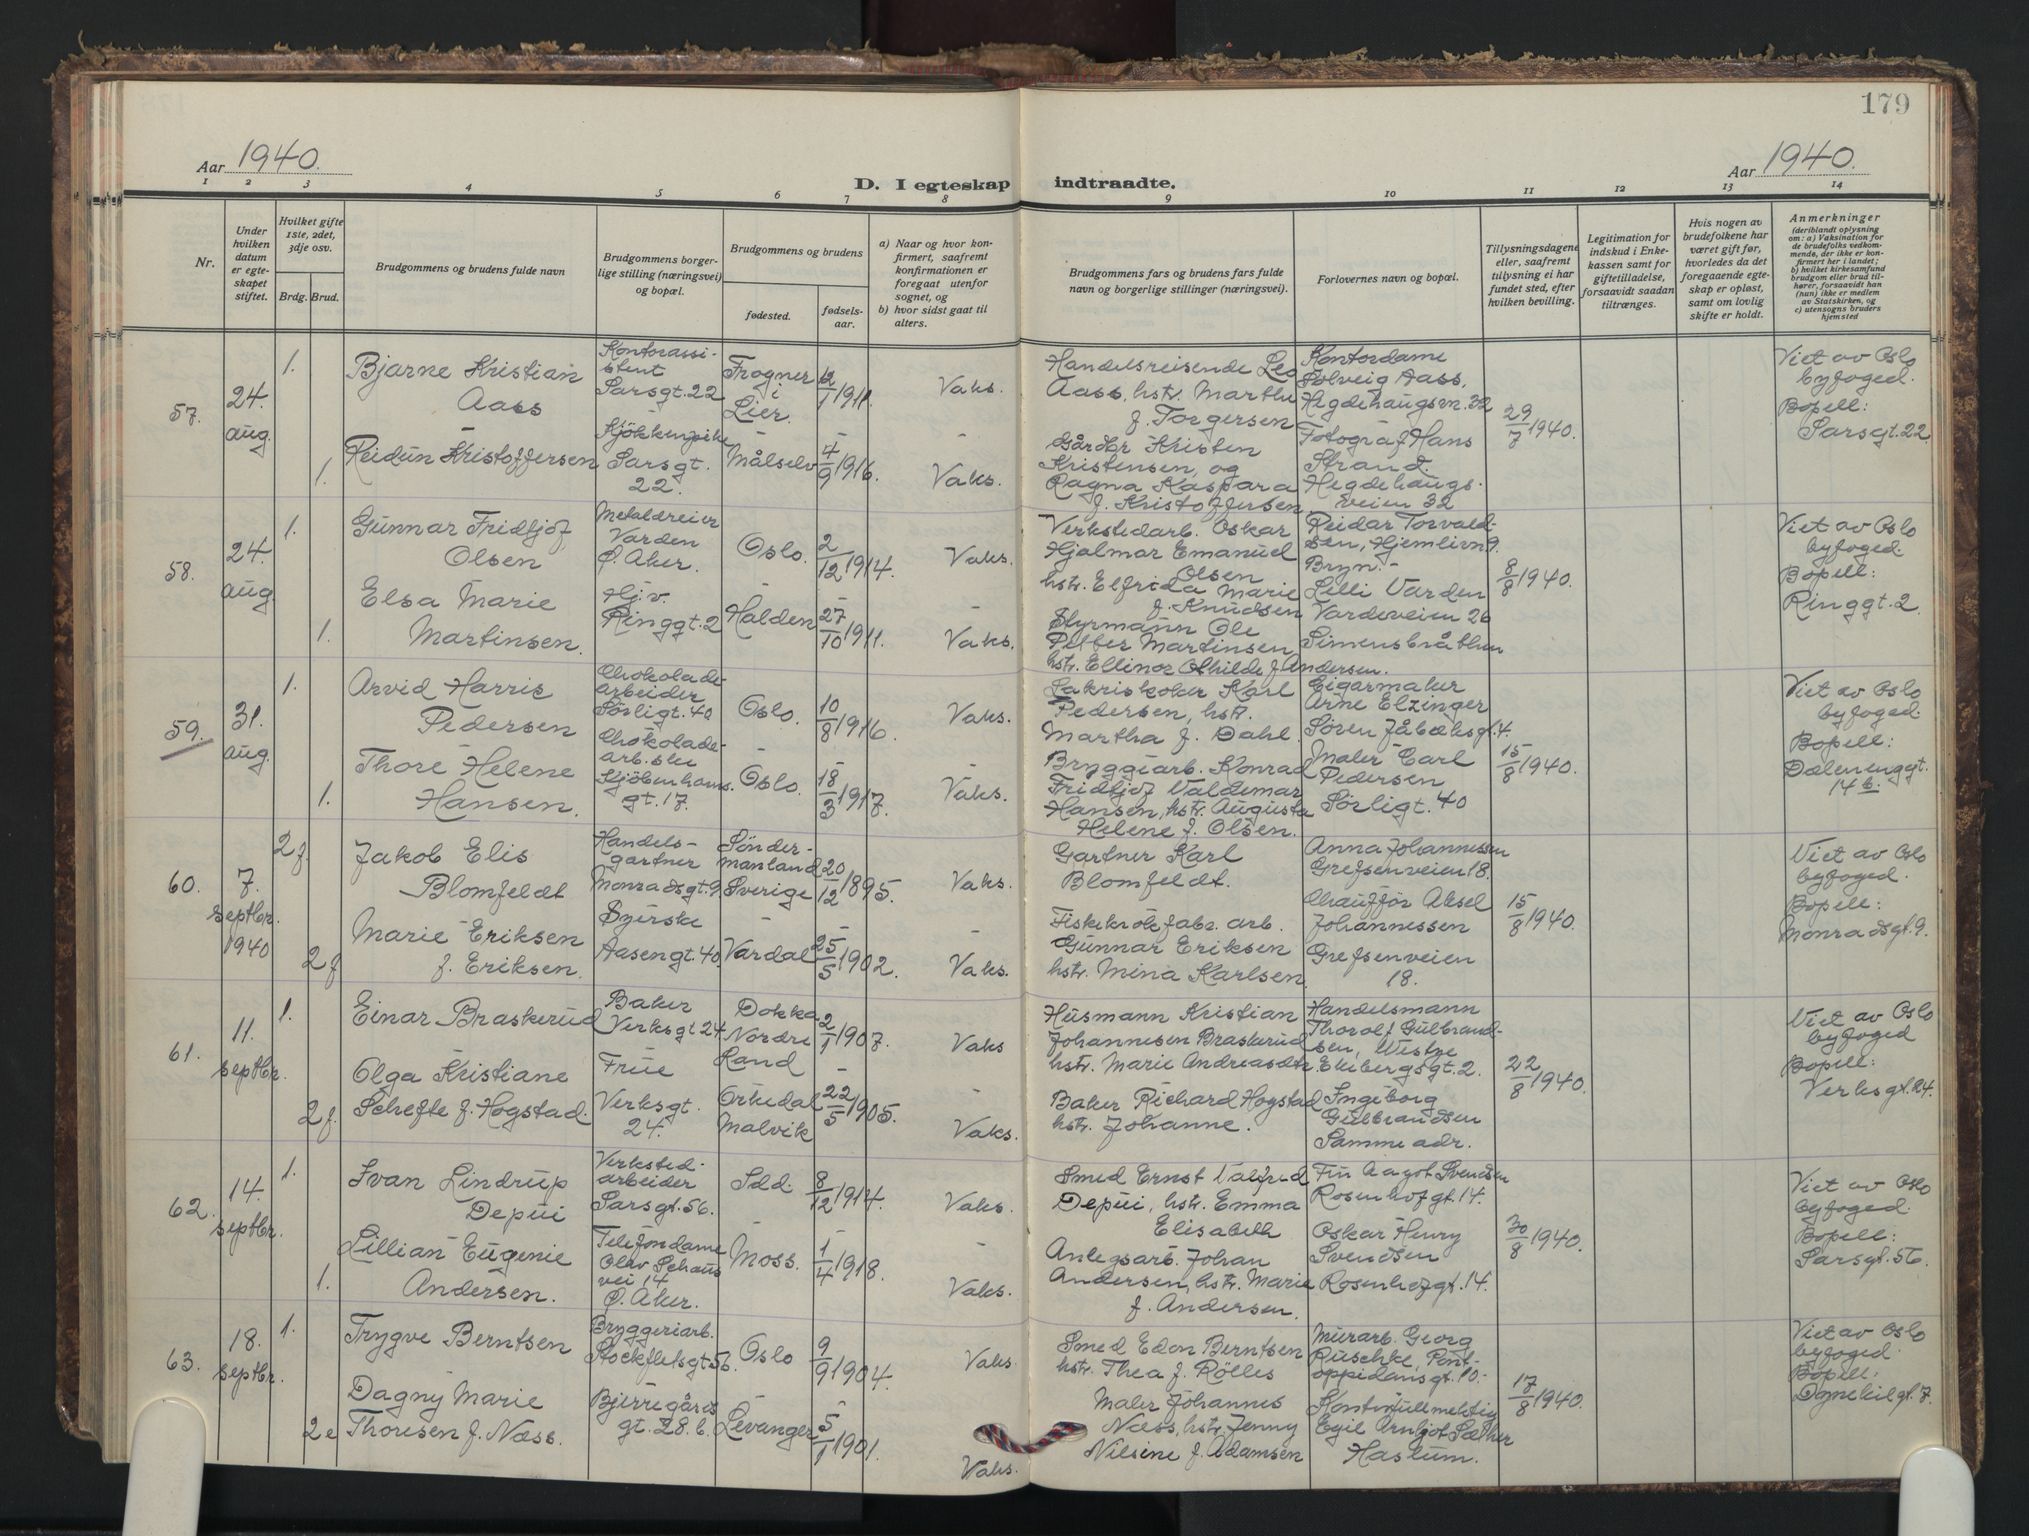 179
Aar 1940.
Aar 1940.
1 2 3 4 5 6 7 8 9 10 11 12 13 14
D. I egteskap indtraadte.
Nr.
Under hvilken datum er egteskapet stiftet.
Hvilket gifte 1ste, 2det, 3dje osv.
Brdg. Brud.
Brudgommens og brudens fulde navn
Brudgommens borgerlige stilling (næringsvei) og bopæl.
Brudgommens og brudens
fødested.
fødselsaar.
a) Naar og hvor konfirmert, saafremt konfirmationen er foregaat utenfor sognet, og
b) hvor sidst gaat til alters.
Brudgommens fars og brudens fars fulde navn og borgerlige stillinger (næringsvei).
Forlovernes navn og bopæl.
Tillysningsdagene eller, saafremt tillysning ei har fundet sted, efter hvilken bevilling.
Legitimation for indskud i Enkekassen samt for giftetilladelse, forsaavidt saadan tiltrænges.
Hvis nogen av brudefolkene har været gift før, hvorledes da det foregaaende egteskap er opløst, samt om lovlig skifte er holdt.
Anmerkninger
(deriblandt oplysning om: a) Vaksination for de brudefolks vedkommende, der ikke er konfirmert her i landet; b) hvilket kirkesamfund brudgom eller brud tilhører, forsaavidt han (hun) ikke er medlem av Statskirken, og c) utensogns bruders hjemsted
57.
24. aug.
1.
Bjarne Kristian
Aass
Kontorassistent
Sarsgt. 22
Frogner
i
Lier.
12/1 1911.
Vaks.
Handelsreisende Leo
Aass, hstr. Marthe
f. Torgersen
Kontordame
Solveig Aass,
Hegdehaugsvn. 32
29/7 1940.
Viet av Oslo
byfoged.
Bopell:
Sarsgt. 22
1.
Reidun Kristoffersen
Kjökkenpike
Sarsgt.
22.
Målselv
4/9 1916.
Vaks.
Gårdbr Kristen
Kristensen, og
Ragna Kaspara
f. Kristoffersen
Fotograf Hans
Strand.
Hegdehaugs-
veien 32
58.
24. aug.
1.
Gunnar Fridtjof
Olsen
Metaldreier
Varden
Ø. Aker.
Oslo.
2/12 1914.
Vaks.
Verkstedarb. Oskar
Hjalmar Emanuel
Olsen
hstr. Elfrida Marie
f. Knudsen
Reidar Torvald-
sen, Hjemlivn 9.
Bryn. -
8/8 1940.
Viet av Oslo
byfoged.
Bopell:
Ringgt. 2
1.
Elsa Marie
Martinsen.
Hj.v.
Ringgt. 2
Halden
27/10 1911.
Vaks.
Styrmann Ole
Petter Martinsen
hstr. Ellinor Othilde f. Andersen.
Lilli Varden
Vardeveien 26
Simensbråthen
59.
31. aug.
1.
Arvid Harris
Pedersen
Chokolade-
arbeider
Sörligt. 40
Oslo.
10/8 1916.
Vaks.
Lakriskoker Karl
Pedersen, hstr.
Martha f. Dahl.
Cigarmaker
Arne Elzinger
Søren Jåbæksgt. 4.
15/8 1940.
Viet av Oslo
byfoged.
Bopell:
Dælenenggt.
14 b.
1.
Thore Helene
Hansen.
Chokolade-
arb.ske
Kjöbenhavns.
gt. 17.
Oslo.
18/3 1917.
Vaks.
Bryggiarb. Konrad
Fridtjof Valdemar
Hansen, hstr. Augusta
Helene f. Olsen.
Maler Carl
Pedersen
Sörligt. 40
60.
7. septbr. 1940
2 f.
Jakob Elis
Blomfeldt
Handels-
gartner
Monradsgt. 9
Sönder-
manland
Sverige
20/12 1895.
Vaks.
Gartner Karl
Blomfeldt.
Anna Johannessen
Grefsenveien 18.
15/8 1940.
Viet av Oslo
byfoged.
Bopell:
Monradsgt. 9.
2 f
Marie Eriksen
f. Eriksen.
Syerske
Aasengt. 40.
Vardal
25/5 1902.
Vaks.
Fiskekrokfabr. arb.
Gunnar Eriksen
hstr. Mina Karlsen
Chauffør Aksel
Johannessen
Grefsenveien
18.
61.
11. septbr.
1.
Einar Braskerud
Baker
Verksgt 24
Dokka
Nordre
Land
2/1 1907.
Vaks
Husmann Kristian
Johannesen Braskerud
hstr. Marie Andreasdtr.
Handelsmann
Thorolf Gulbrand-
sen,
Ekebergsgt. 2.
22/8 1940.
Viet av Oslo
byfoged
Bopell:
Verksgt. 24.
2 f.
Olga Kristiane
Schefte f. Hogstad.
Frue
Verksgt.
24.
Orkedal
Malvik
22/5 1905.
Vaks.
Baker Richard Hogstad
hstr. Johanne.
Ingeborg
Gulbrandsen
Samme adr.
62.
14. septbr.
1.
Ivan Lindrup
Depui
Verksted-
arbeider
Sarsgt. 56.
Idd.
8/12 1914.
Vaks.
Smed Ernst Valfred
Depui, hstr. Emma
Elisabeth
Fru Aagot Svendsen
Rosenhofgt. 14.
30/8 1940.
Viet av Oslo
byfoged.
Bopell:
Sarsgt. 56.
1.
Lillian Eugenie
Andersen.
Telefondame
Olav Schaus
vei 14
Ø. Aker.
Moss.
1/4 1918.
Vaks.
Anlegsarb. Johan
Andersen, hstr. Marie
f. Andersen.
Oskar Henry
Svendsen
Rosenhofgt. 14.
63.
18. septbr.
1.
Trygve Berntsen
Bryggeriarb.
Stockfletsgt 56.
Oslo
9/9 1904.
Vaks.
Smed Edon Berntsen
hstr. Thea f. Rölles
Murarb. Georg
Ruschke, Pont-
oppidansgt. 10.
17/8 1940.
Viet av Oslo
byfoged.
Bopell:
Dynekilgt. 7.
2 e
Dagny Marie
Thoresen f. Næss.
Bjerregårds
gt. 28. b.
Levanger
5/1 1901.
Vaks.
Maler Johannes
Næss, hstr. Jenny
Nilsine f. Adamsen
Kontorfullmektig
Egil Arnljot Sæther
Haslum.